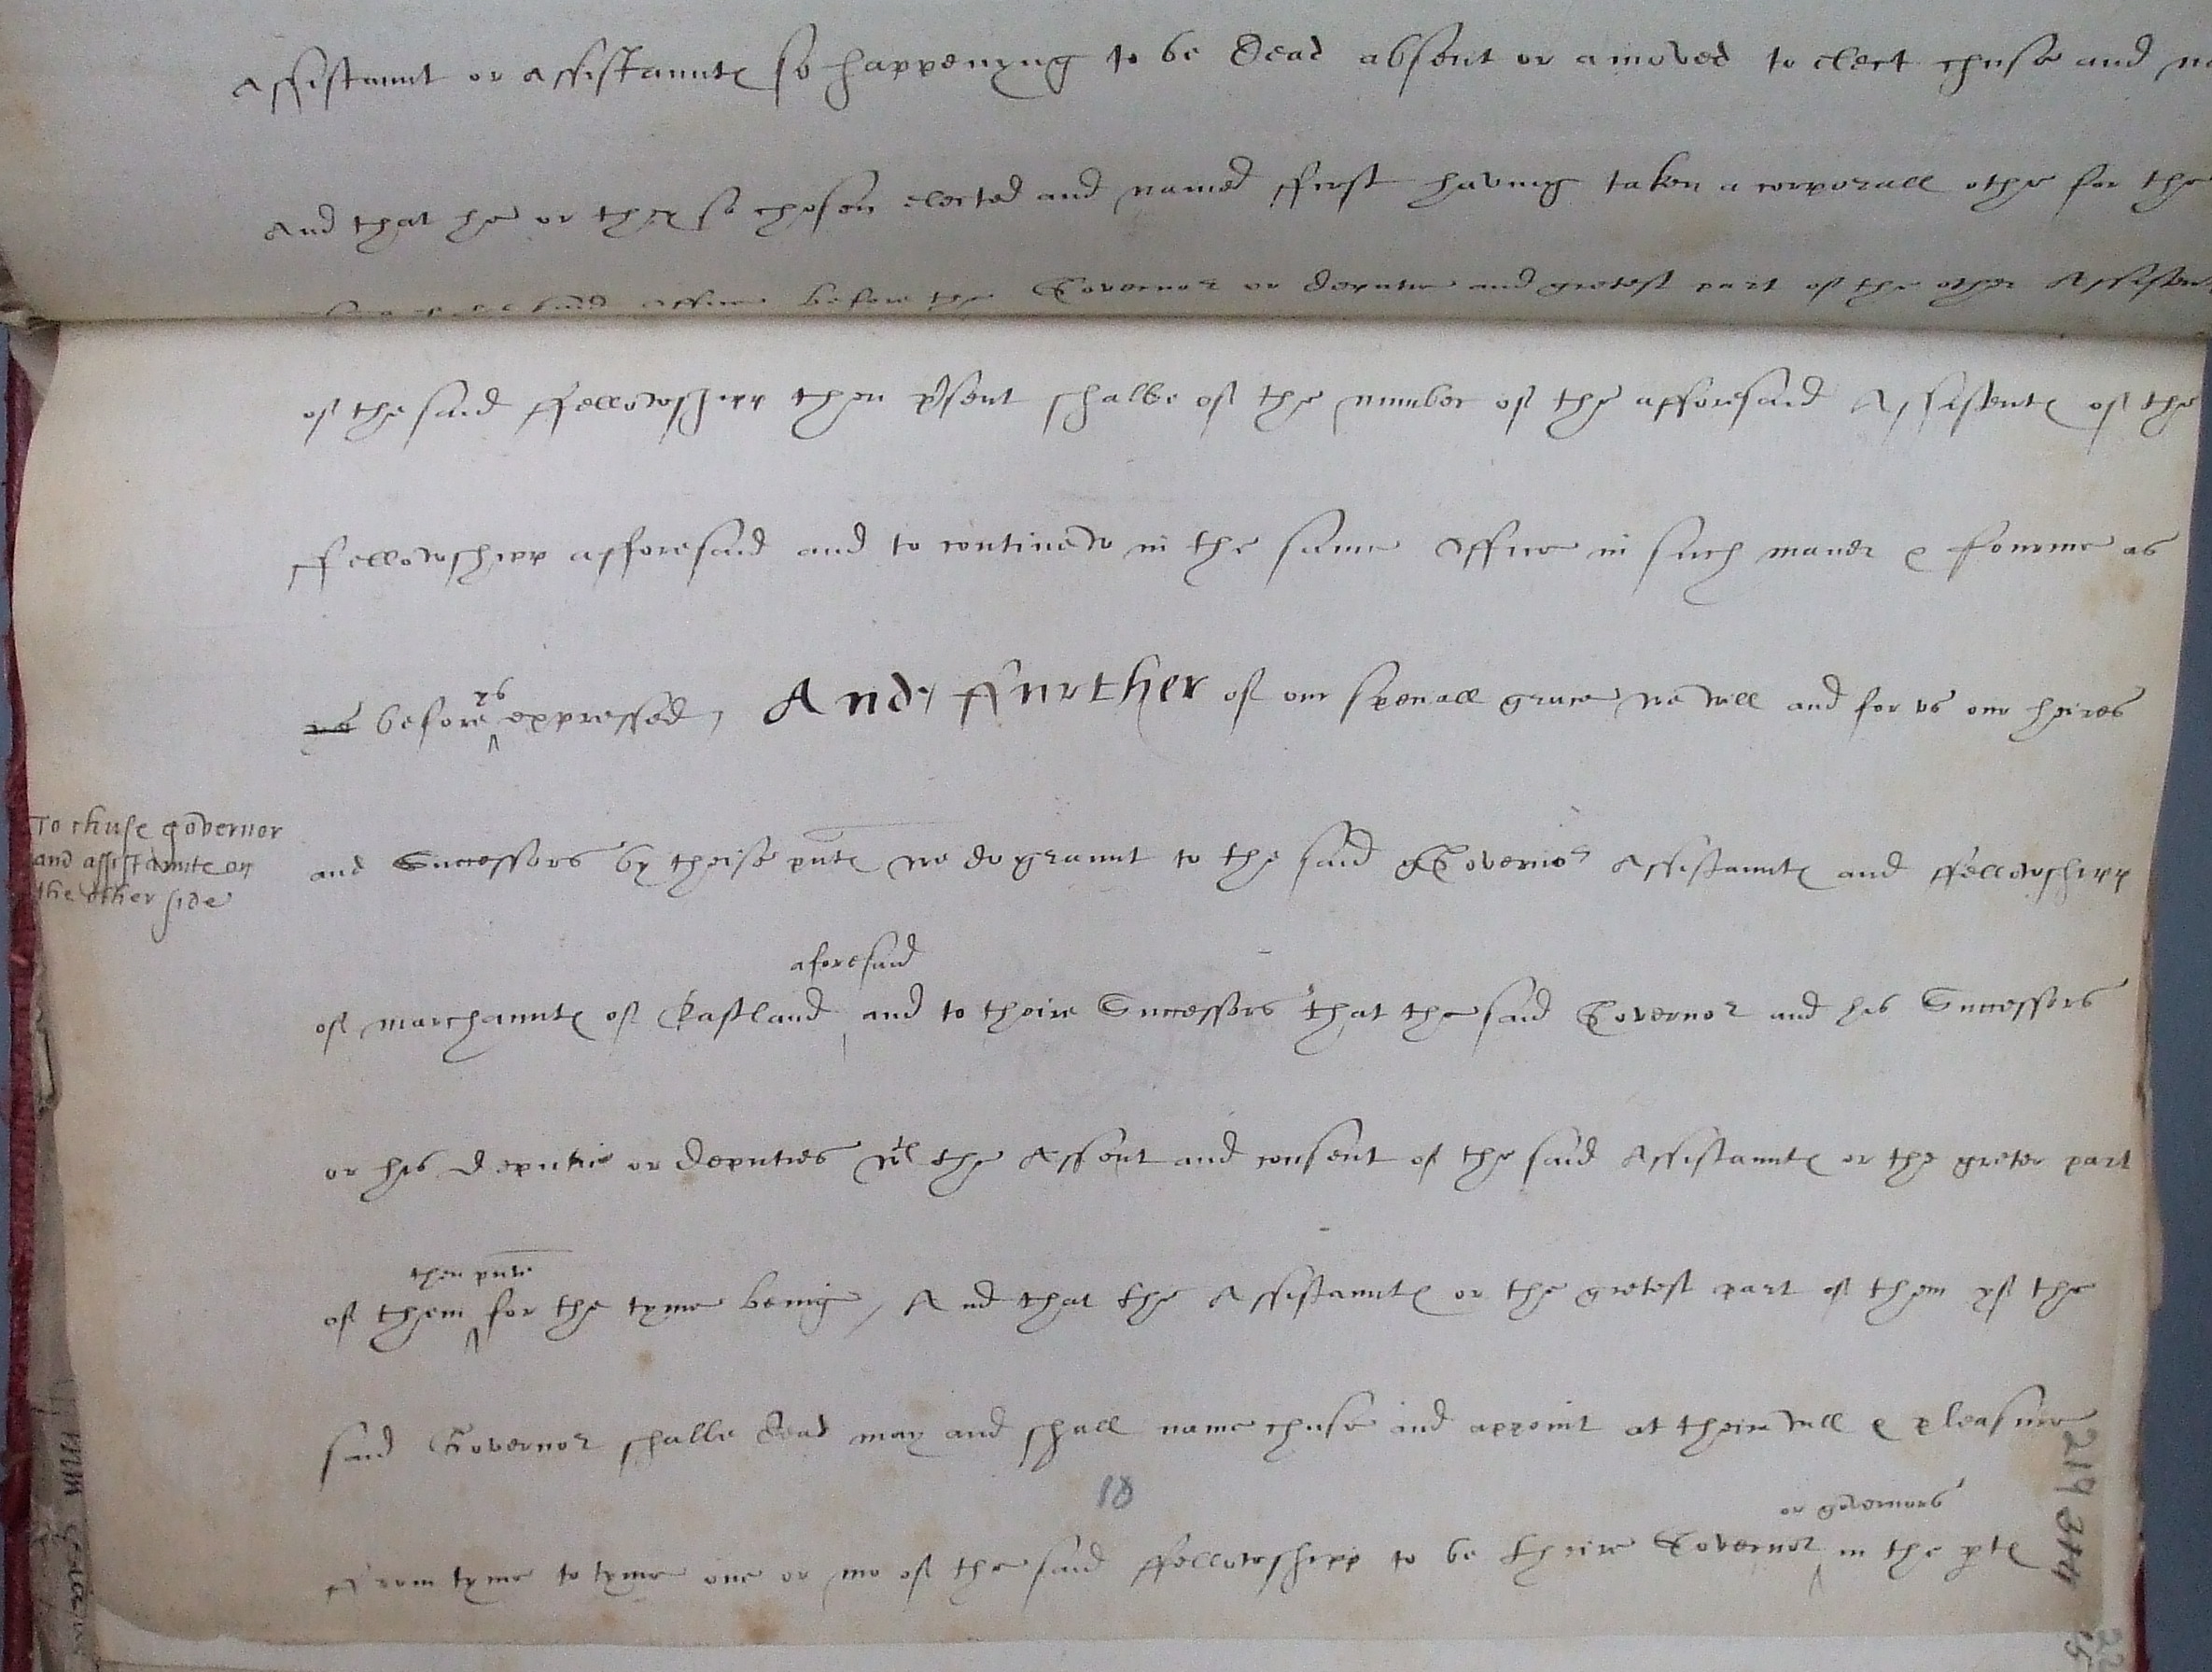 Assistannt or Assistanntes so happenyng to be dead absent or amoved to elect chuse and
And that he or they so chosen elected and named ffirst having taken a corporall othe for the
said office before the Governor or deputie and gretest part of the other Assisten
of the said ffellowshipp then p'sent shalbe of the number of the afforesaid Assistentes of the
ffellowshipp afforesaid and to continew in the same office in such maner & fourme as
before ys expressed, And, ffurther of our speciall grace we will and for us our heires
To chuse governor
and assistannte on
the other side
and Successors by theise pntes we do grannt to the said Governor Assistanntes and ffellowshipp
aforesaid
of marchanntes of Eastland and to theire Successors that the said Governor and his Successors
or his deputie or deputies wt the Assent and consent of the said Assistanntes or the greter part
then pnte
of them for the tyme being, And that the Assistanntes or the gretest part of them yf the
said Governor shalbe dead may and shall name chuse and appoint at theire will & pleasure
18
or governors
ffrom tyme to tyme one or mo of the said ffellowshipp to be theire Governor in the ptes
219 314